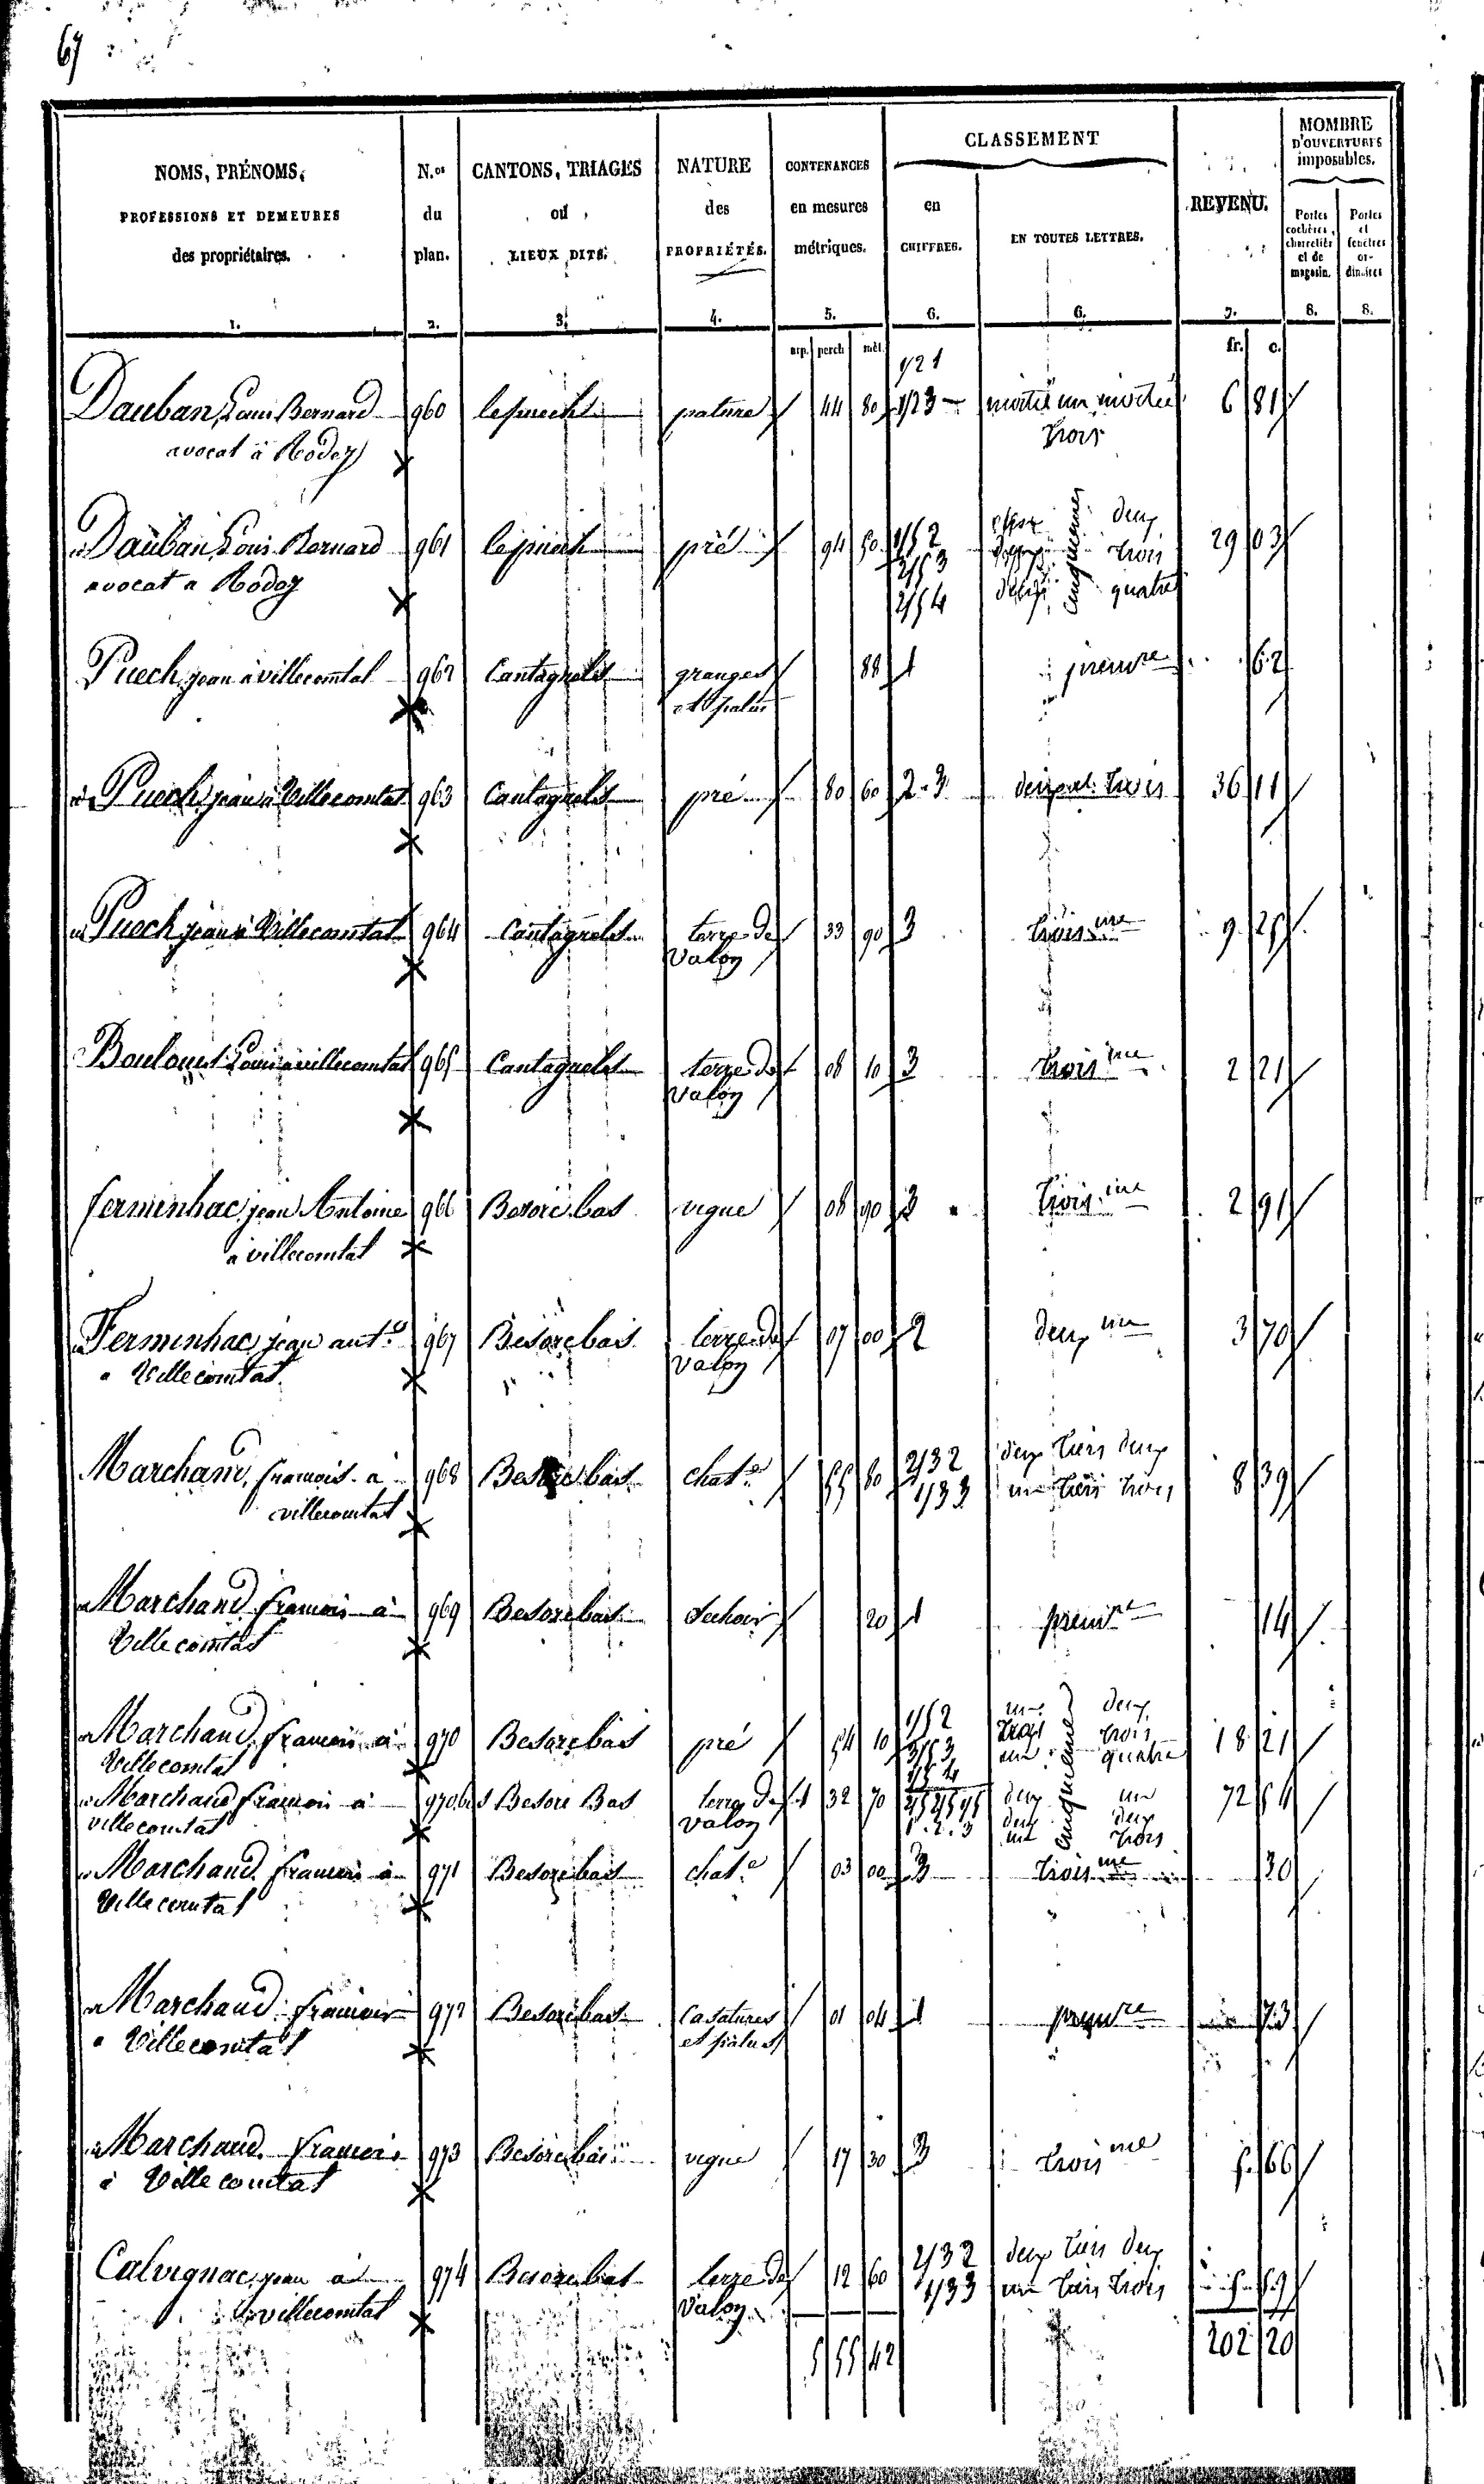 67
NOMS, PRÉNOMS, PROFESSIONS ET DEMEURES des propriétaires. N.os du plan. CANTONS, TRIAGES ou LIEUX DITS. NATURE des PROPRIÉTÉS. CONTENANCES en mesures métriques. CLASSEMENT en CHIFFRES. EN TOUTES LETTRES. REVENU. MOMBRE D'OUVERTURES imposables. Portes cochères, charretièr et de magasin. Portes et fenêtres or-dinaires
1. 2. 3. 4. 5. 6. 6. 7. 8. 8.
arp. perch mèt. fr. c.
1/21
Dauban, Louis Bernard 960 lepuech pature 44 80 1/23 moitié un moitié 6 81
avocat à Rodez trois
Dauban Louis Bernard 961 lepuech pré 94 50 1/52 deux 29 03
2/53 cinquiemes trois
avocat a Rodez 2/54 quatre
Puech jean à villecomtal 962 Cantagrelet granges 88 1 premre 62
et patus
Puech jean à Villecomtal 963 Cantagrelet pré 80 60 2-3 deux et trois 36 11
Puech jean à Villecomtal 964 Cantagrelet terre de 33 90 3 troisme 9 25
Valon
Louis à villecomtal 965 Cantagrelet terre de 08 10 3 troisme 2 21
Valon
ferminhac jean Antoine 966 Besore bas vigne 08 90 3 troisme 2 91
à villecomtal
Ferminhac jean ant.e 967 Besore bas terre de 07 00 2 deuxme 3 70
a Villecomtal Valon
Marchand, francois à 968 Besore bas chat.e 55 80 2/32 deux tiers deux 8 39
villecomtal 1/33 un tiers trois
Marchand francois à 969 Besore bas Sechoir 20 1 premre 14
Villecomtal
Marchand francois à 970 Besore bas pré 54 10 1/52 un deux 18 21
3/53 trois cinquiemes trois
Villecomtal 1/54 un quatre
Marchand francois à 970 bis Besore Bas terre de 1 32 70 2/5 2/5 1/5 deux un 72 54
villecomtal valon 1. 2. 3 deux cinquiemes deux
un trois
Marchand francois à 971 Besore bas chat.e 03 00 3 troisme 30
Villecomtal
Marchand francois 972 Besore bas Casatures 01 04 1 premre 73
a Villecomtal et patus
Marchand francois 973 Besore bas vigne 17 30 3 troisme 5 66
à Villecomtal
Calvignac, jean à 974 Besore bas terre de 12 60 2/32 deux tiers deux 5 59
villecomtal Valon 1/33 un tiers trois
5 55 42 202 20